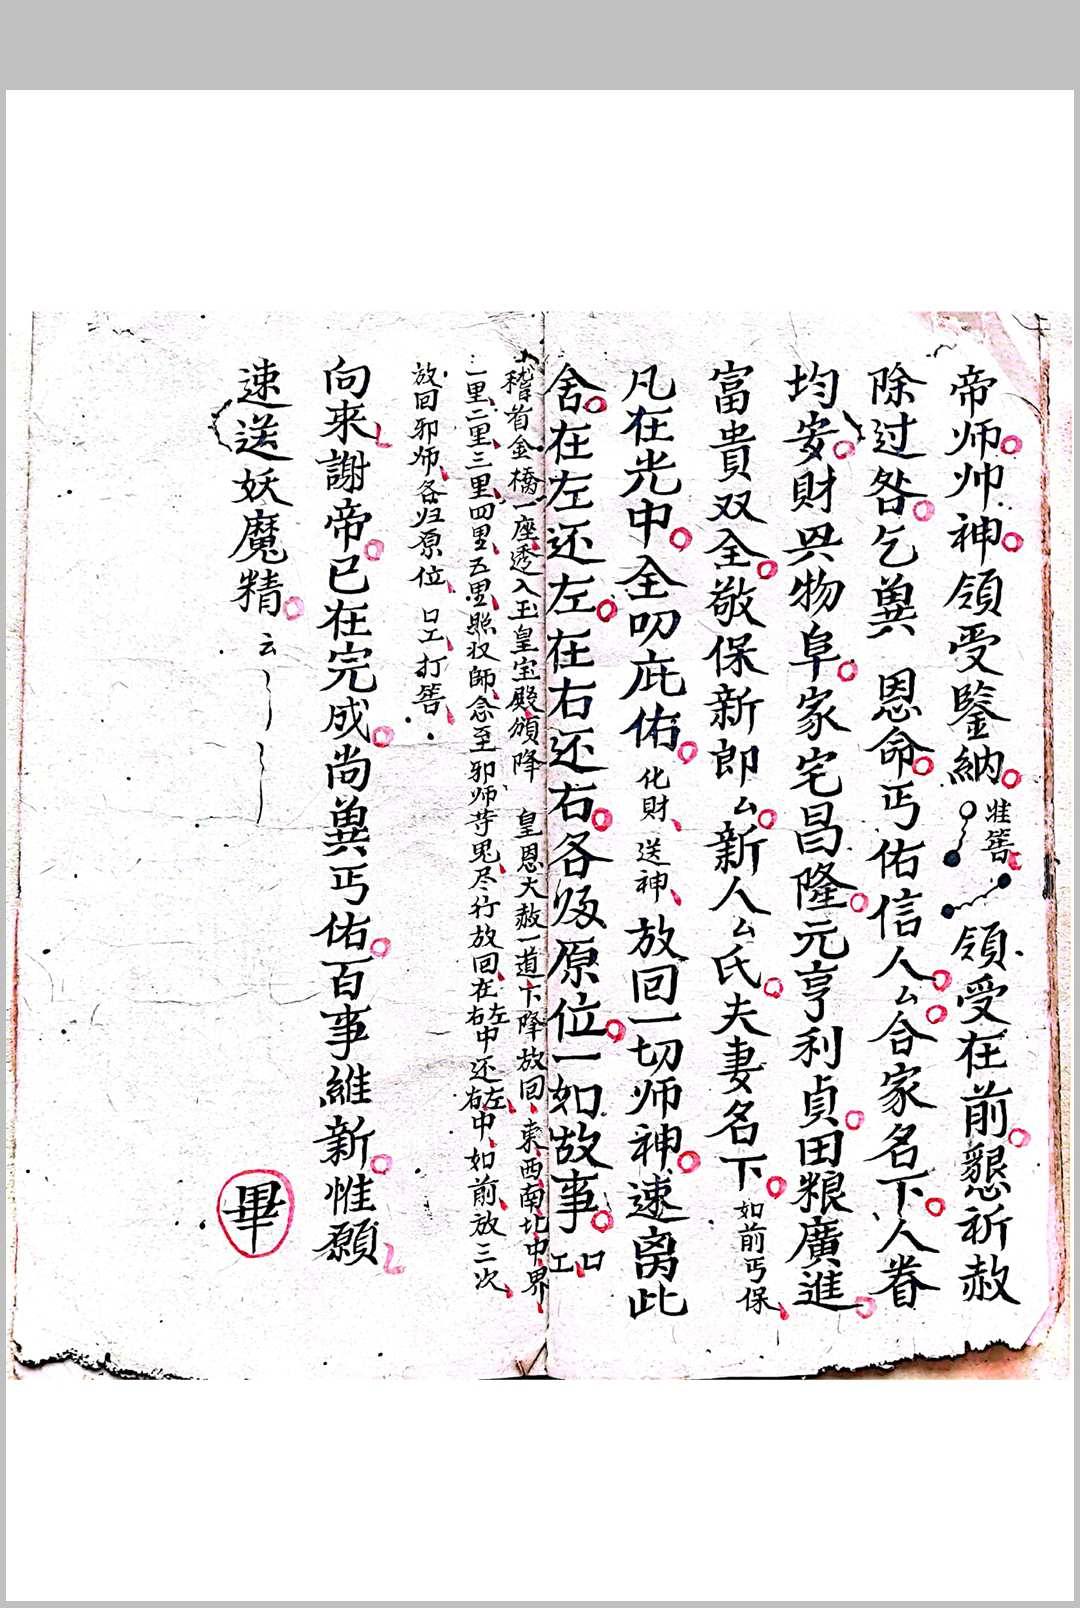 帝师帅神領受鑒納准筶領受在前懇祈赦
除过咎乞兾恩命丐佑信人厶合家名下人眷
均安財興物阜家宅昌隆元亨利貞田粮廣進
富貴双全敬保新郎厶新人厶氏夫妻名下如前丐保
凡在光中全叨庇佑化財送神放回一切师神速离此
舍在左还左在右还右各归原位一如故事口工
稽首金橋一座透入玉皇宝殿頒降皇恩大赦一道下降放回東西南北中界
一里二里三里四里五里照収師念至邪师等鬼尽行放回在左右中还左右中如前放三次
放回邪师各归原位口工打筶
向来謝帝已在完成尚兾丐佑百事維新惟願
速送妖魔精云
畢